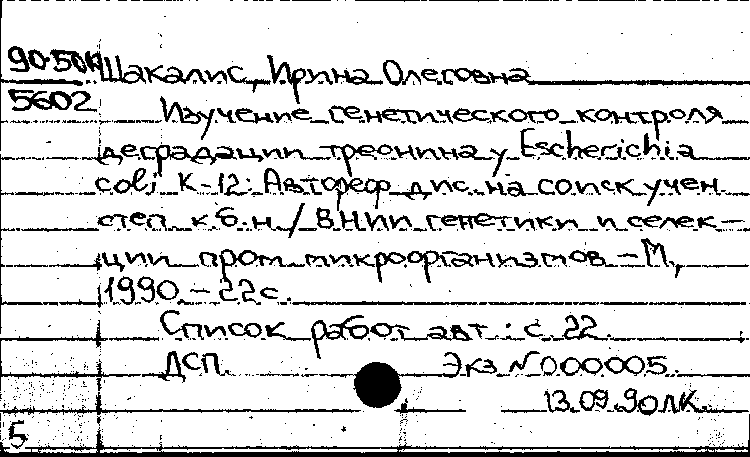 90-50К Шакалис, Ирина Олеговна
5602 Изучение генетического контроля
деградации треонина у Escherichia
coli K-12: Автореф дис. на соиск учен
степ к.б.н. / ВНИИ генетики и селек-
ции пром. микроорганизмов - М.,
1990. - 22 с.
Список работ авт.: с. 22.
ДСП. Экз N 000005.
13.09.90 ЛК.
5